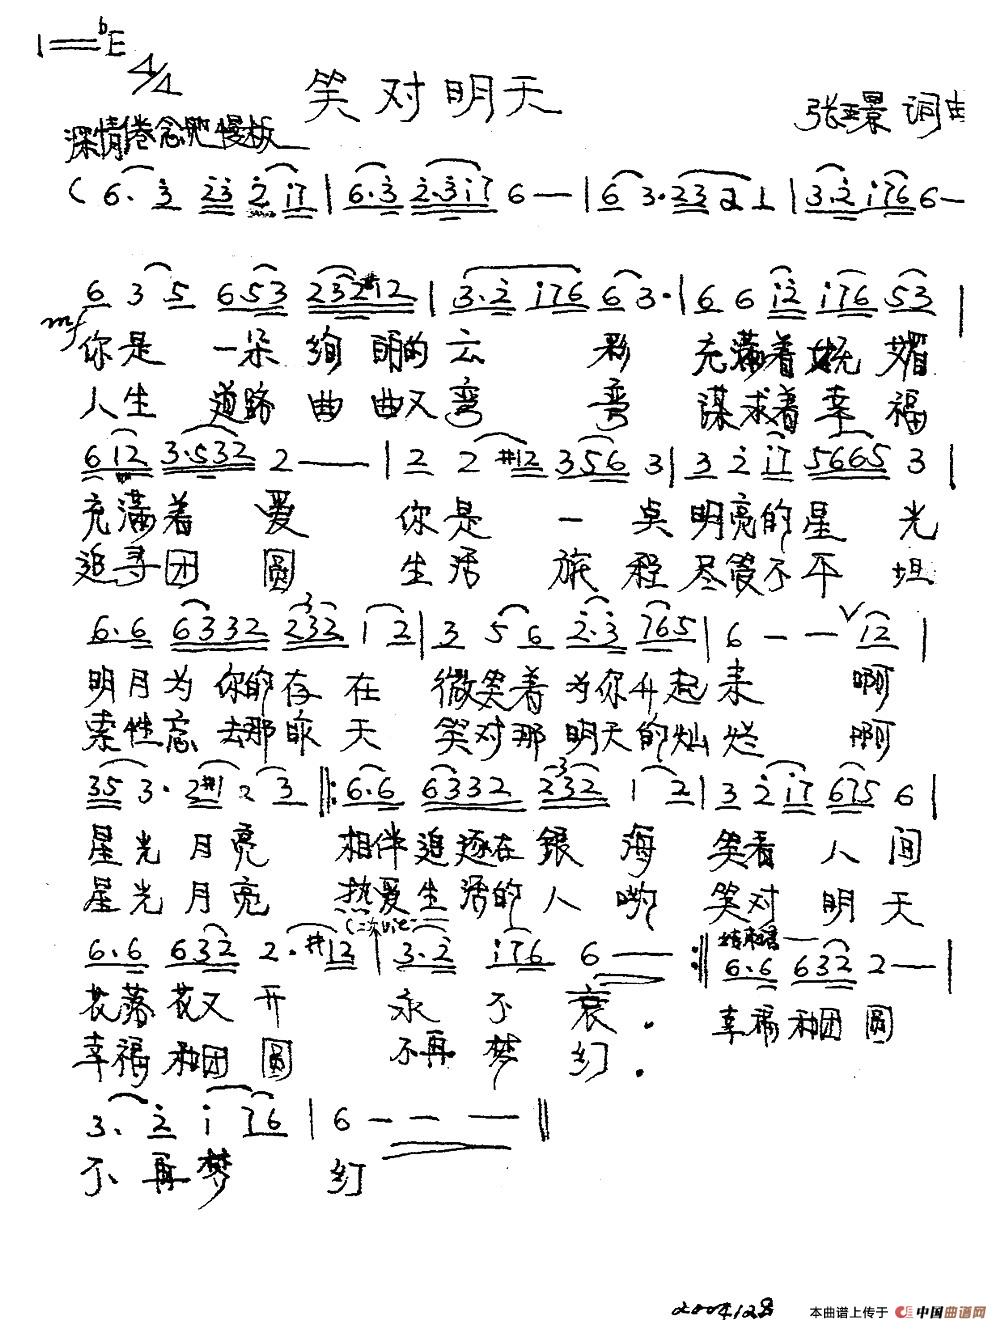 1=bE
4/4
笑对明天
张玉景 词曲
深情倦念地 慢板
(6· 3 23 2 i7 | 6·3 2·3i7 6 — | 6 3·23 2 1 | 3·2 i76 6—
6 3 5 653 232#12 | 3·2 i76 6 3· | 6 6 i2 i76 53 |
mf
你是一朵绚丽的云彩 充满着妩媚
人生道路曲曲又弯弯 谋求着幸福
6 i2 3·532 2 —— | 2 2 #12 356 3 | 3 2 i7 5665 3 |
充满着爱 你是一点明亮的星光
追寻团圆 生活旅程尽管不平坦
6·6 6332 232 1 2 | 3 5 6 2·3 765 | 6 — — V i2 |
明月为你的存在 微笑着为你升起来 啊
索性忘去那昨天 笑对那明天的灿烂 啊
35 3· 2#1 2· 3 ‖: 6·6 6332 232 1 2 | 3 2 i7 675 6 |
星光月亮 相伴追逐在银海 笑看人间
星光月亮 热爱生活的人哟 笑对明天
(二次
6·6 632 2·#12 | 3·2 i76 6 —— :‖ 结束句—— 6·6 632 2—— |
花落花又开 永不衰. 幸福和团圆
幸福和团圆 不再梦幻.
3· 2 i 76 | 6 — — — ‖
不再梦幻
本曲谱上传于 中国曲谱网